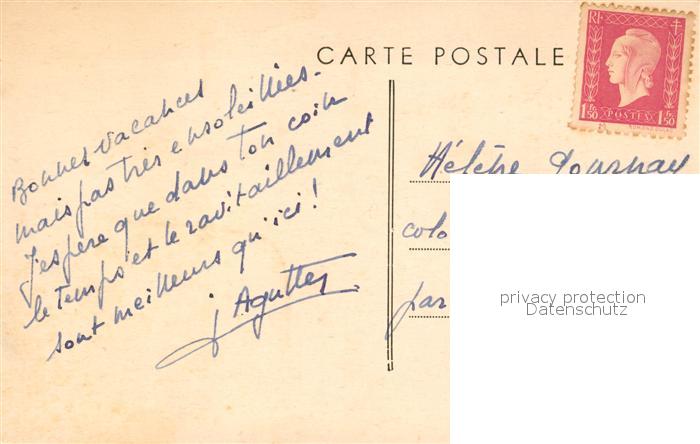 CARTE POSTALE
RF
1 Fr. 50 POSTES 1 Fr. 50
Bonnes vacances
mais pas très ensoleillées.
J'espère que dans ton coin
le temps et le ravitaillement
sont meilleurs qu'ici !
J Agutter
Hélène
colo
par
privacy protection
Datenschutz